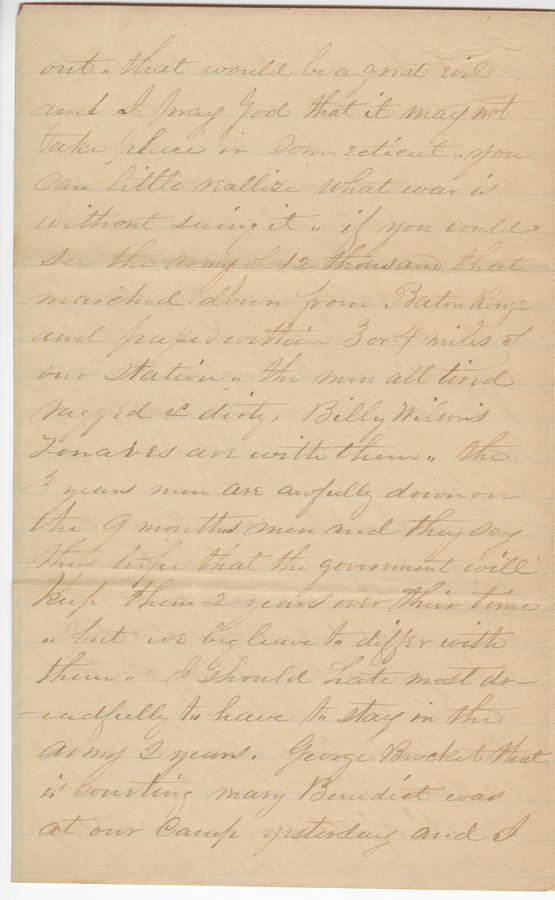 out „ that would be a great evil
and I pray God that it may not
take place in Connecticut „ you
can little reallize what war is
without seeing it „ if you could
see the army of 12 thousand that
marched down from Baton Rouge
and passed within 3 or 4 miles of
our station „ the men all tired
ragged & dirty, Billy Wilson's
Zouaves are with them „ the
3 years men are awfully down on
the 9 months men and they say
they hope that the government will
keep them 2 years over their time
„ but we beg leave to differ with
them „ I should hate most dr-
-eadfully to have to stay in the
army 2 years. George Brocket that
is courting mary Benedict was
at our camp yesterday and I